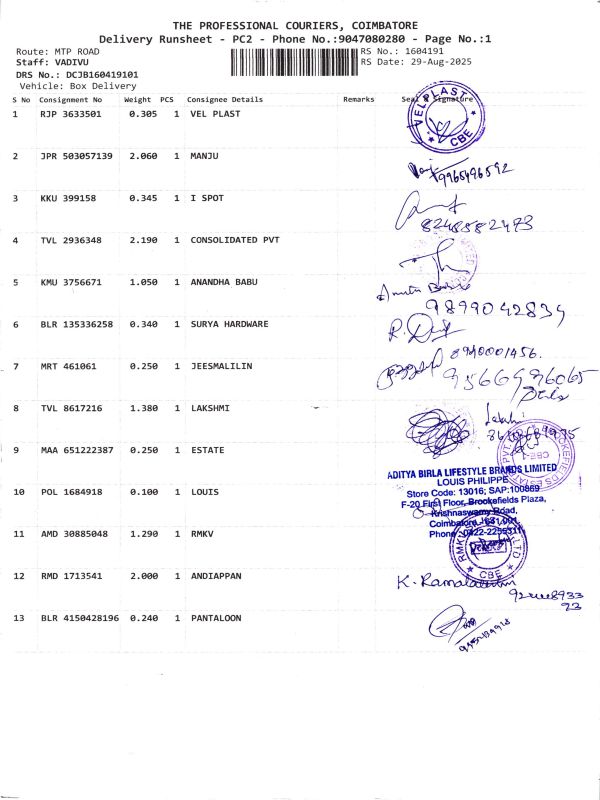 THE PROFESSIONAL COURIERS, COIMBATORE
Delivery Runsheet - PC2 - Phone No.:9047080280 - Page No.:1
Route: MTP ROAD
RS No.: 1604191
Staff: VADIVU
RS Date: 29-Aug-2025
DRS No.: DCJB160419101
Vehicle: Box Delivery
S No Consignment No Weight PCS Consignee Details Remarks Seal & Signature
1 RJP 3633501 0.305 1 VEL PLAST
VEL PLAST CBE
2 JPR 503057139 2.060 1 MANJU
9965496592
3 KKU 399158 0.345 1 I SPOT
8248582473
4 TVL 2936348 2.190 1 CONSOLIDATED PVT
5 KMU 3756671 1.050 1 ANANDHA BABU
9899042834
6 BLR 135336258 0.340 1 SURYA HARDWARE
8940001456.
7 MRT 461061 0.250 1 JEESMALILIN
9566996065
8 TVL 8617216 1.380 1 LAKSHMI
9 MAA 651222387 0.250 1 ESTATE
ADITYA BIRLA LIFESTYLE BRANDS LIMITED
LOUIS PHILIPPE
10 POL 1684918 0.100 1 LOUIS
Store Code: 13016; SAP:100869
F-20 First Floor, Brookefields Plaza,
Krishnaswamy Road,
Coimbatore-641001.
11 AMD 30885048 1.290 1 RMKV
RMKV LTD CBE
12 RMD 1713541 2.000 1 ANDIAPPAN
13 BLR 4150428196 0.240 1 PANTALOON